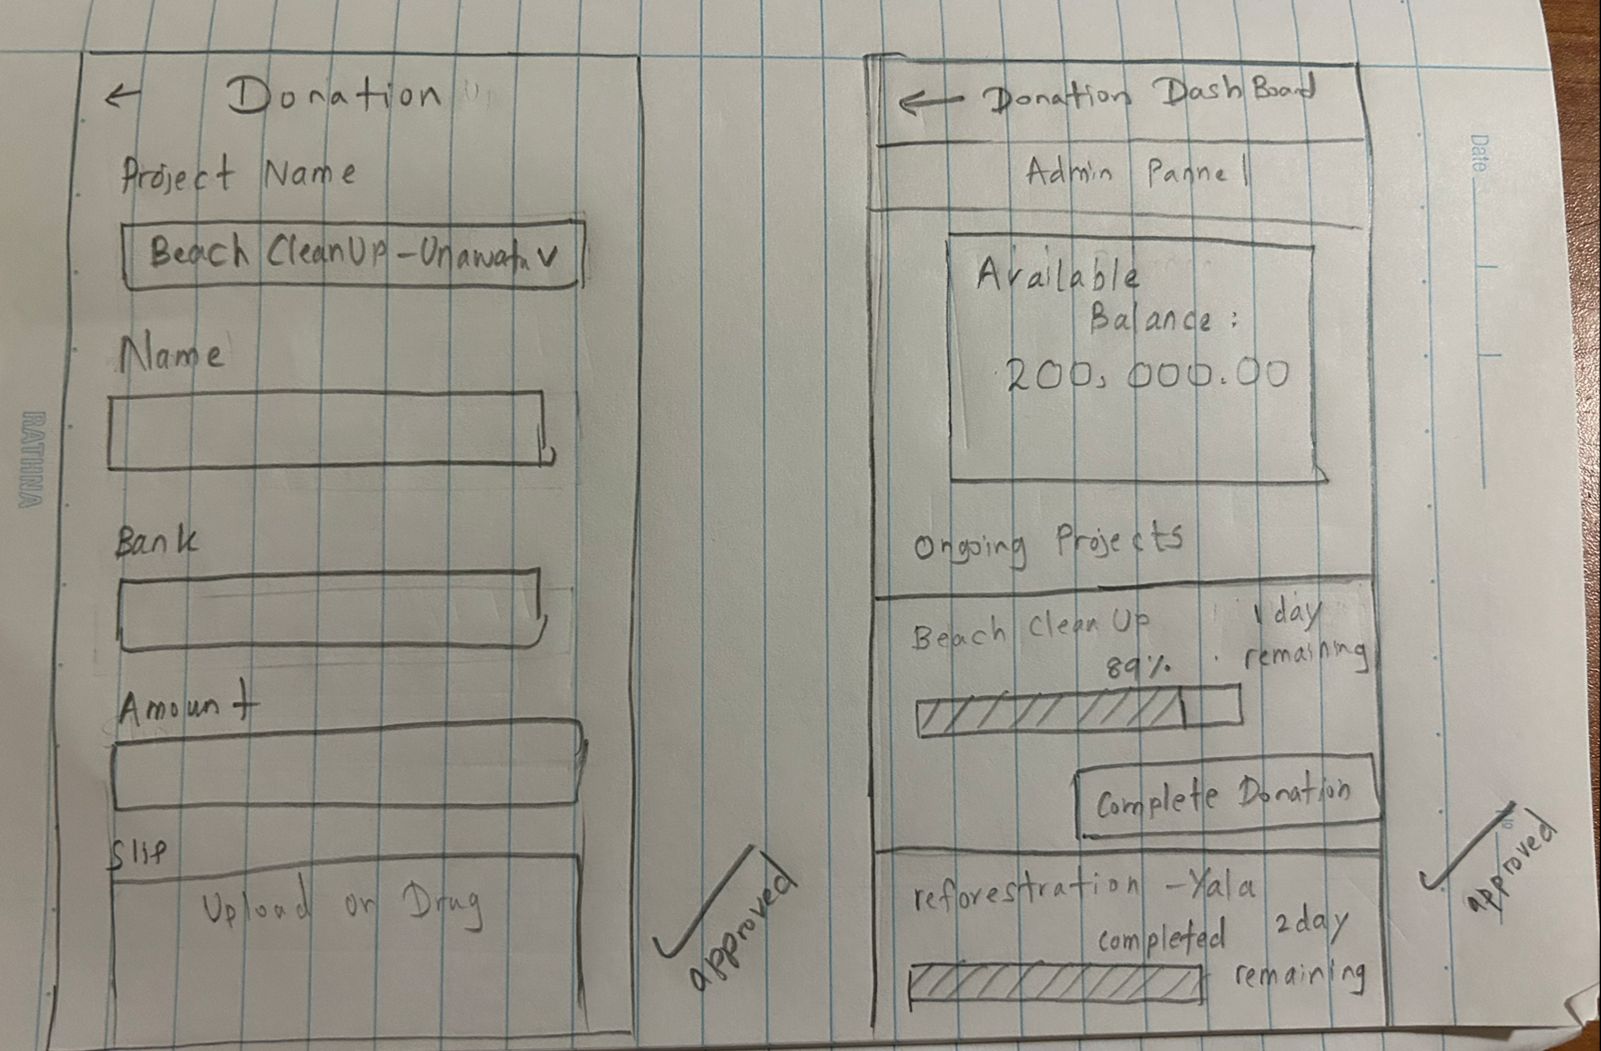 ← Donation
Project Name
Beach CleanUp - Unawatu v
Name
Bank
Amount
Slip
Upload or Drag
approved
← Donation DashBoard
Admin Pannel
Available
Balance :
200,000.00
Ongoing Projects
Beach Clean Up
1 day
remaining
89%
Complete Donation
reforestration - Yala
completed
2 day
remaining
approved
RATHNA
Date